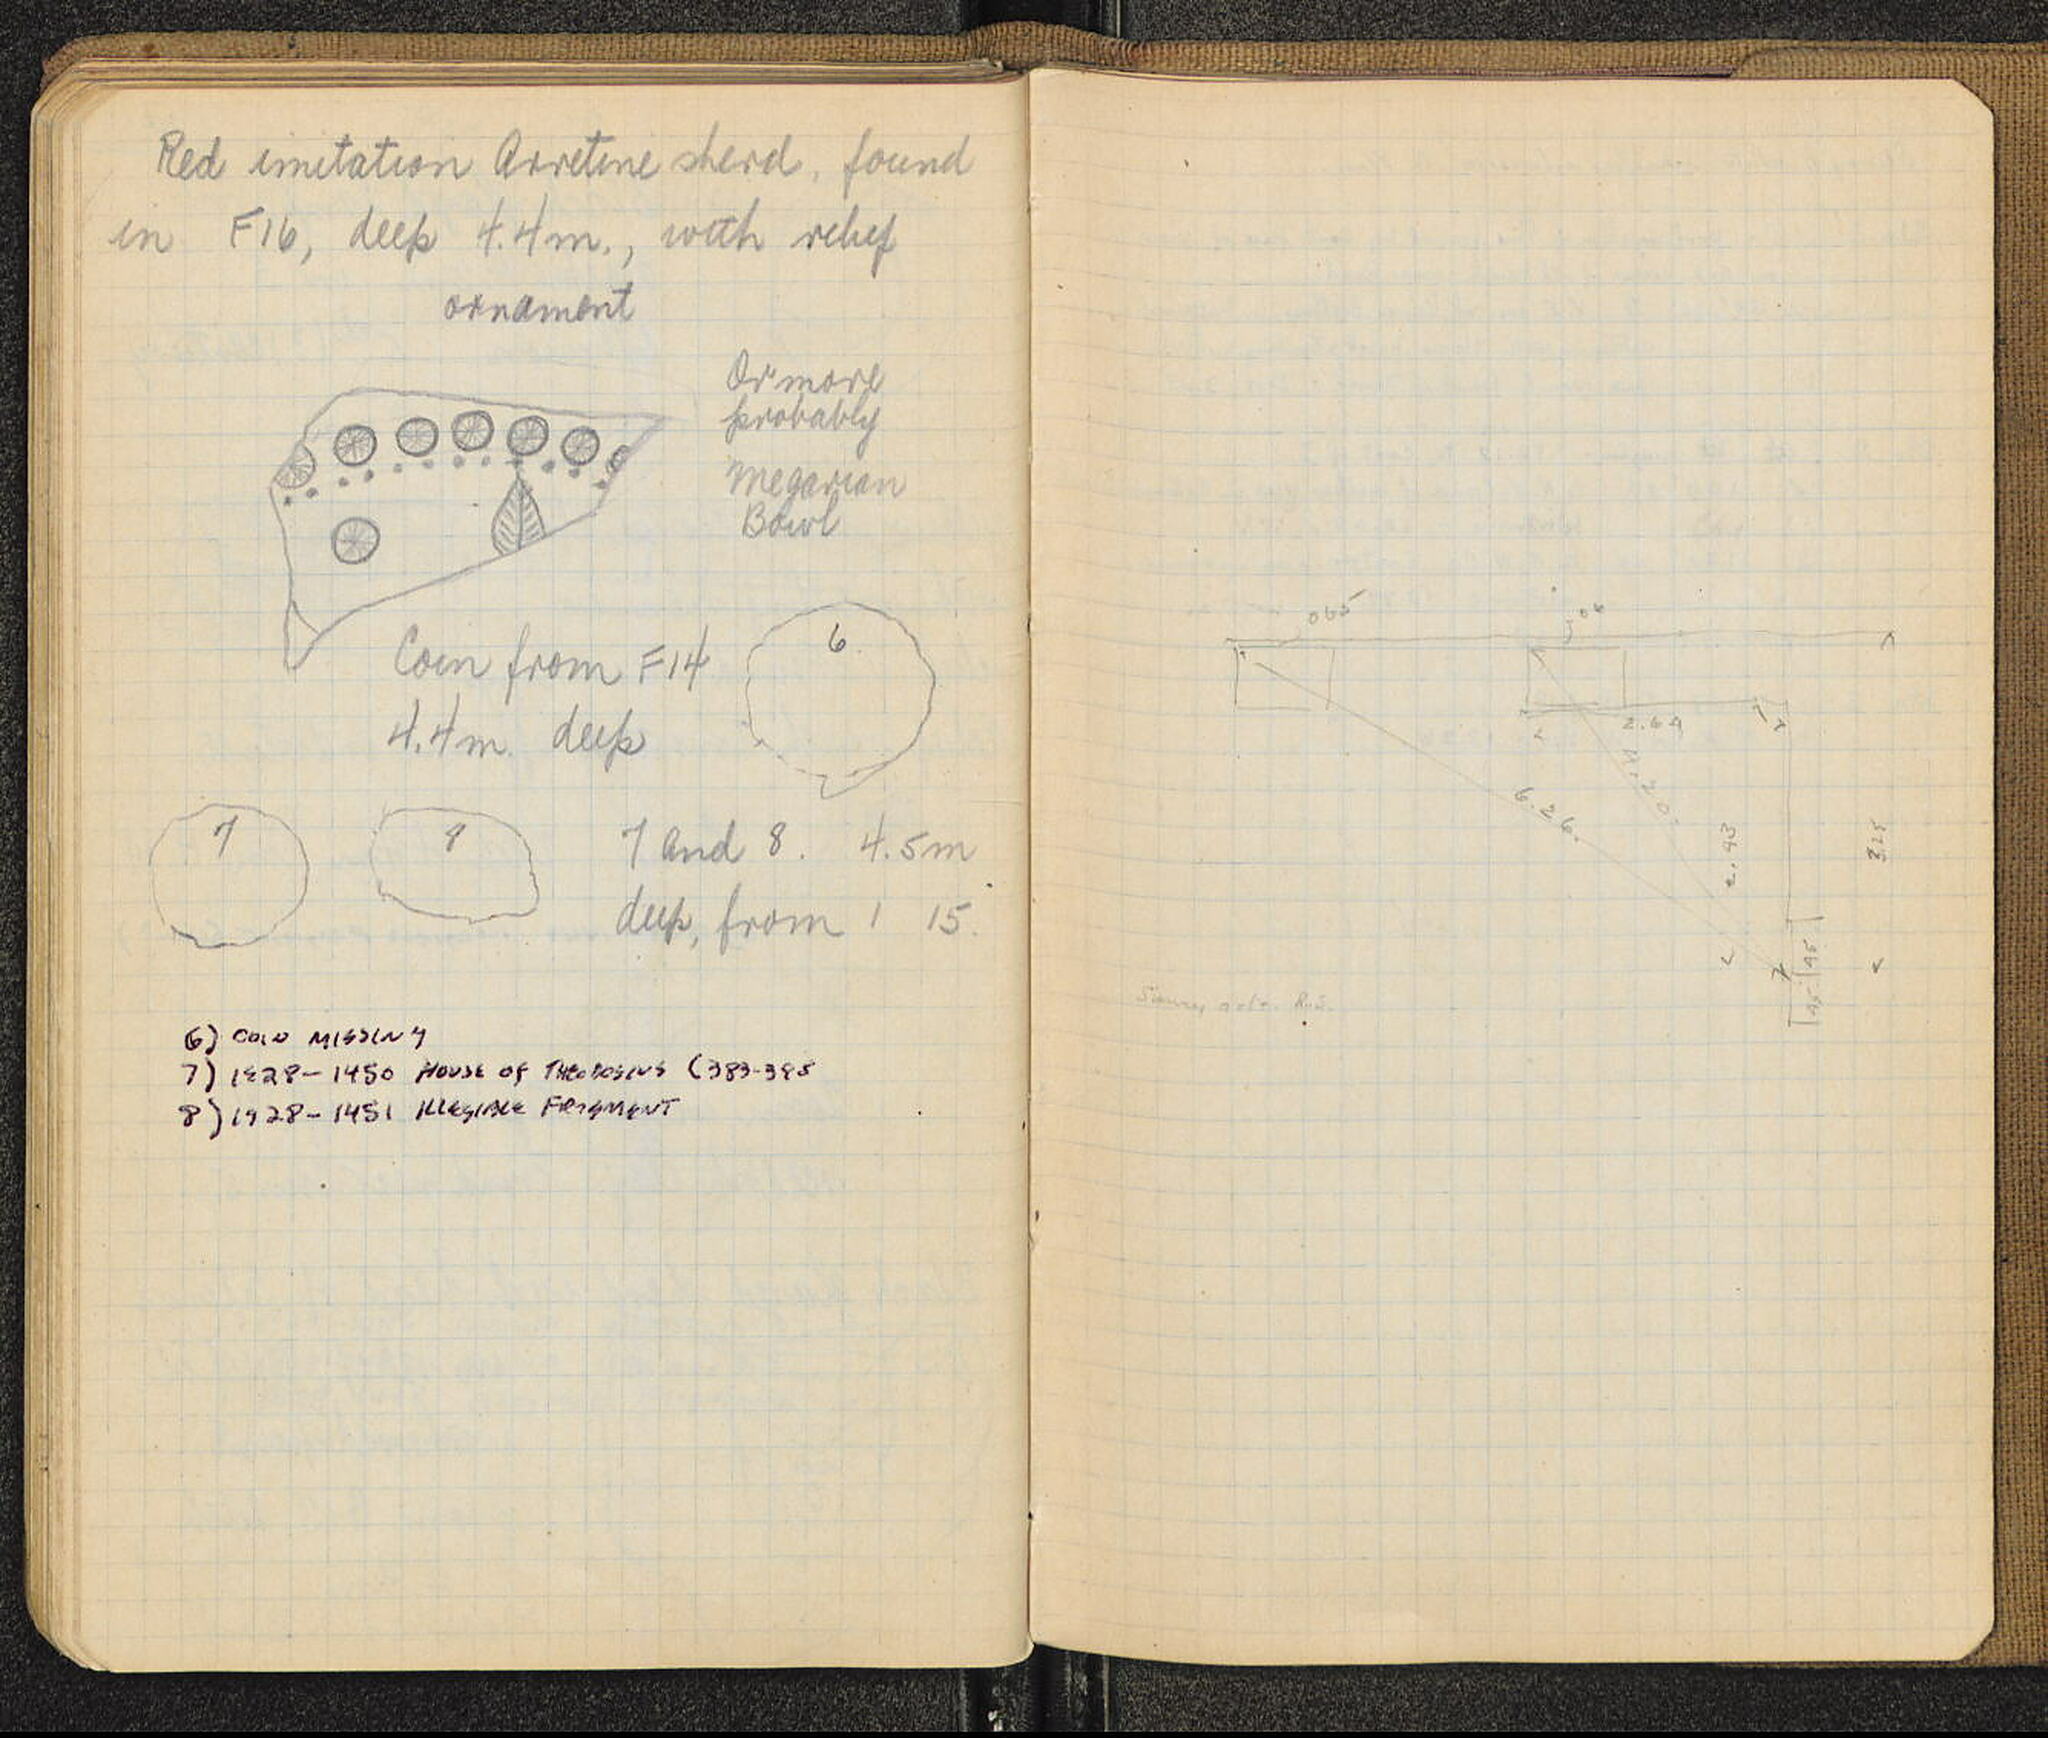 Red imitation Arretine sherd, found
in F16, deep 4.4m., with relief
ornament
Or more
probably
Megarian
Bowl
Coin from F14
4.4m. deep
6
7
8
7 and 8. 4.5m
deep, from 1 15.
6) COIN MISSING
7) 1928-1450 HOUSE OF THEODOSIUS (383-395
8) 1928-1451 ILLEGIBLE FRAGMENT
065
06
2.64
4.20
6.26
2.43
3.25
.45
.45